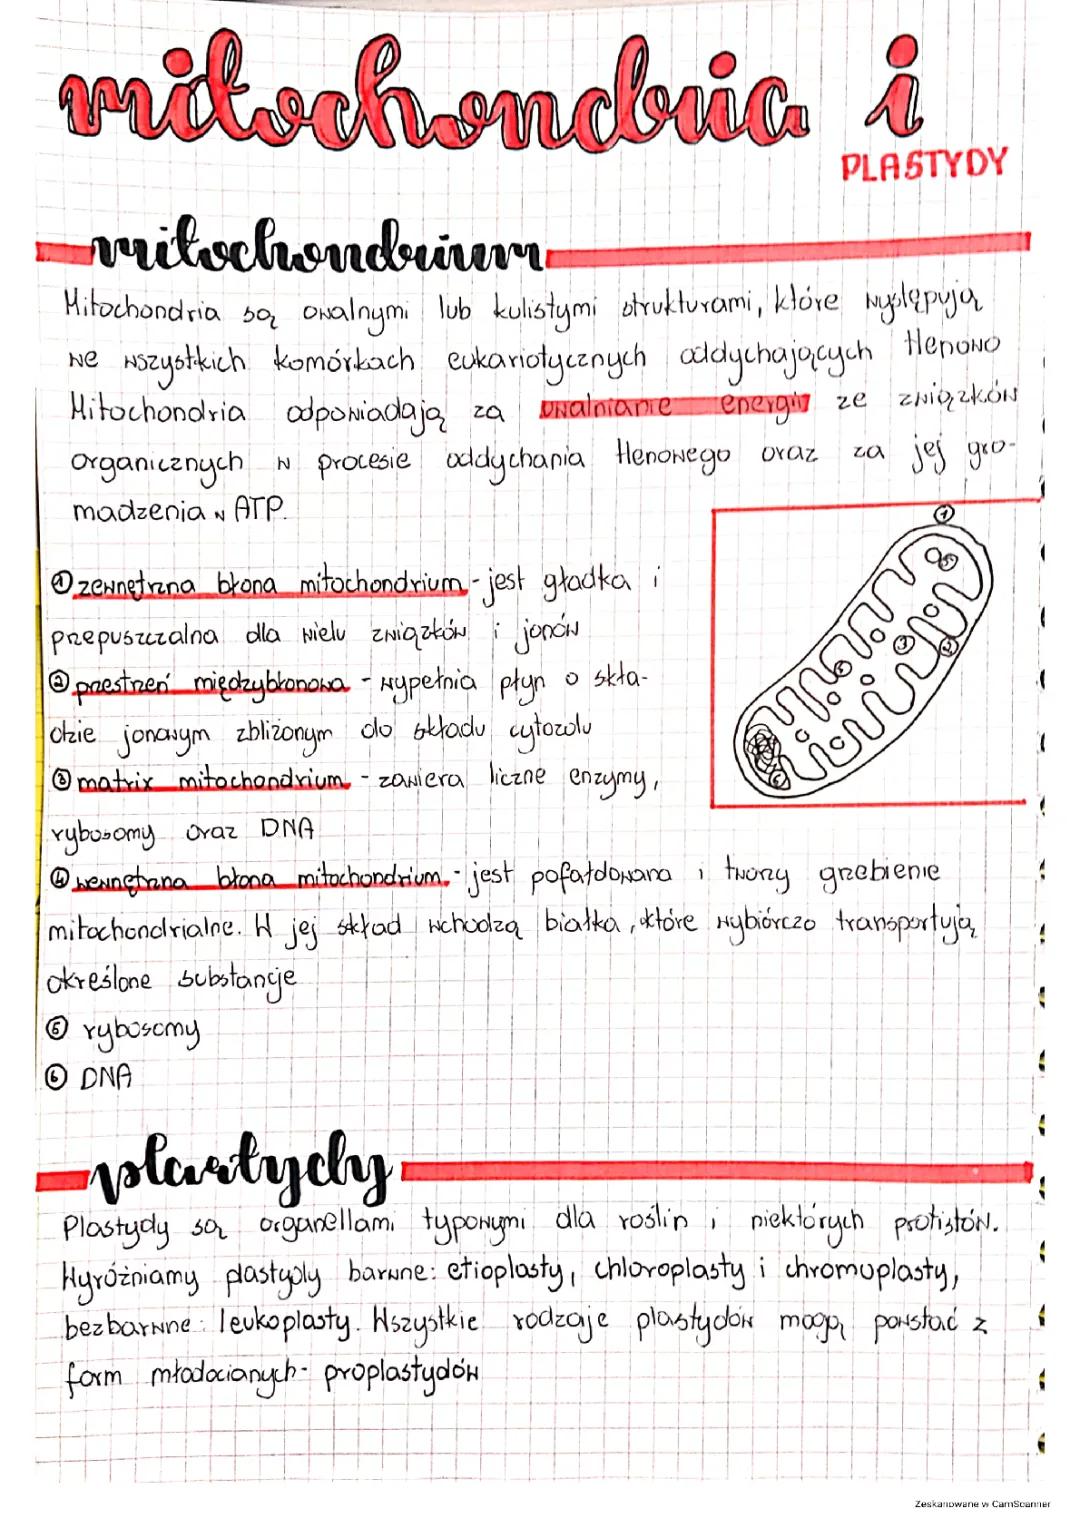 mitochondria i
PLASTYDY
mitochondrium
Mitochondria są owalnymi lub kulistymi strukturami, które występują
we wszystkich komórkach eukariotycznych oddychających tlenowo
Mitochondria odpowiadają za uwalnianie energii ze związków
organicznych w procesie oddychania tlenowego oraz za jej gro-
madzenia w ATP.
① zewnętrzna błona mitochondrium - jest gładka i
przepuszczalna dla wielu związków i jonów
② przestrzeń międzybłonowa - wypełnia płyn o skła-
dzie jonowym zbliżonym do składu cytozolu
③ matrix mitochondrium - zawiera liczne enzymy,
rybosomy oraz DNA
④ wewnętrzna błona mitochondrium - jest pofałdowana i tworzy grzebienie
mitochondrialne. W jej skład wchodzą białka, które wybiórczo transportują
określone substancje
⑤ rybosomy
⑥ DNA
①
⑤
③
②
⑥
plastydy
Plastydy są organellami typowymi dla roślin i niektórych protistów.
Wyróżniamy plastydy barwne: etioplasty, chloroplasty i chromoplasty,
bezbarwne: leukoplasty. Wszystkie rodzaje plastydów mogą powstać z
form młodocianych - proplastydów
Zeskanowane w CamScanner